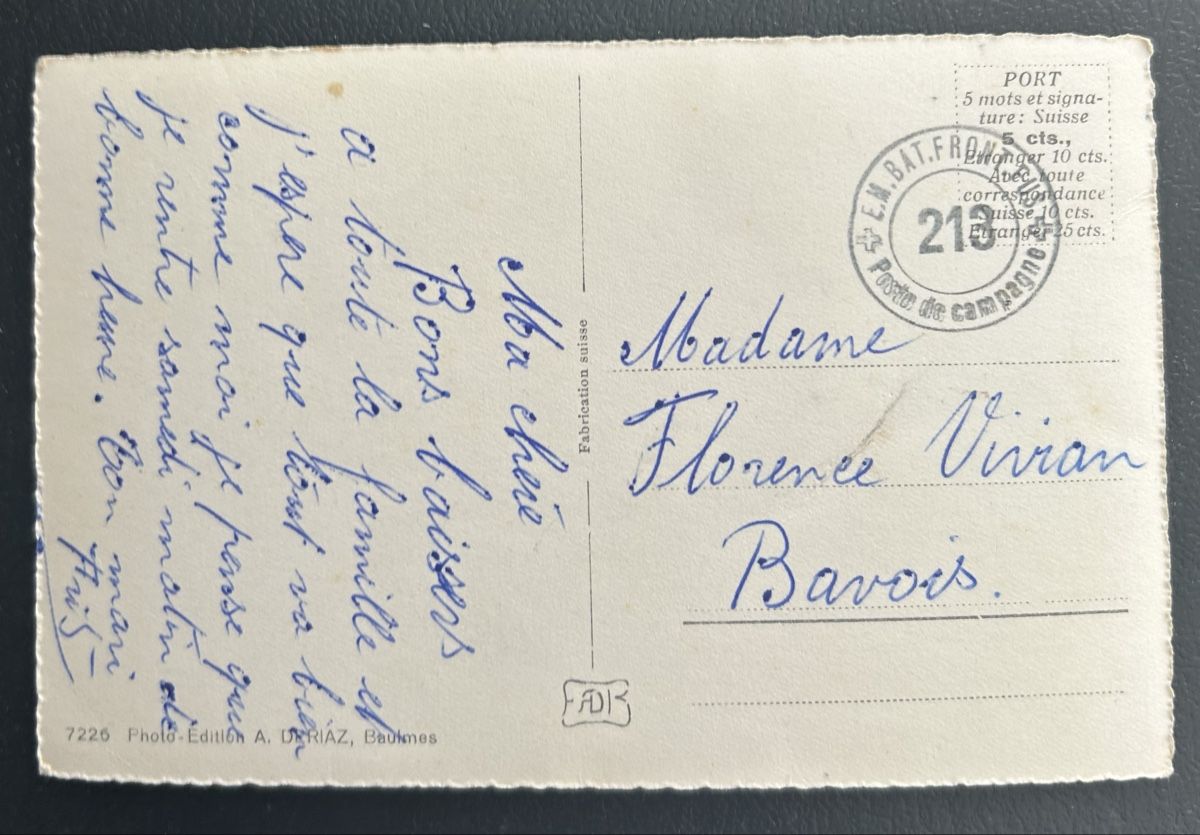 Ma cherè
Bons baisers
a toute la famille et
j'espere que tout va bien
comme moi je pense que
je rentre samedi matin de
bonne heure. Ton mari
7226 Photo-Edition A. DERIAZ, Baulmes
Fabrication suisse
PORT
5 mots et signa-
ture: Suisse
5 cts.,
Etranger 10 cts.
Avec toute
correspondance
Suisse 10 cts.
Etranger 25 cts.
E.M. BAT. FRONT. FUS
213
Poste de campagne
Madame
Florence Vivian
Bavois.